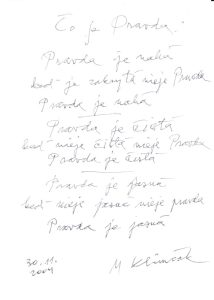 Čo je Pravda.
Pravda je nahá
keď je zakrytá nieje Pravda
Pravda je nahá
Pravda je čistá
keď nieje čistá nieje Pravda
Pravda je čistá
Pravda je jasná
keď nieje jasná nieje pravda
Pravda je jasná
30.11.
2004
M Klimčák